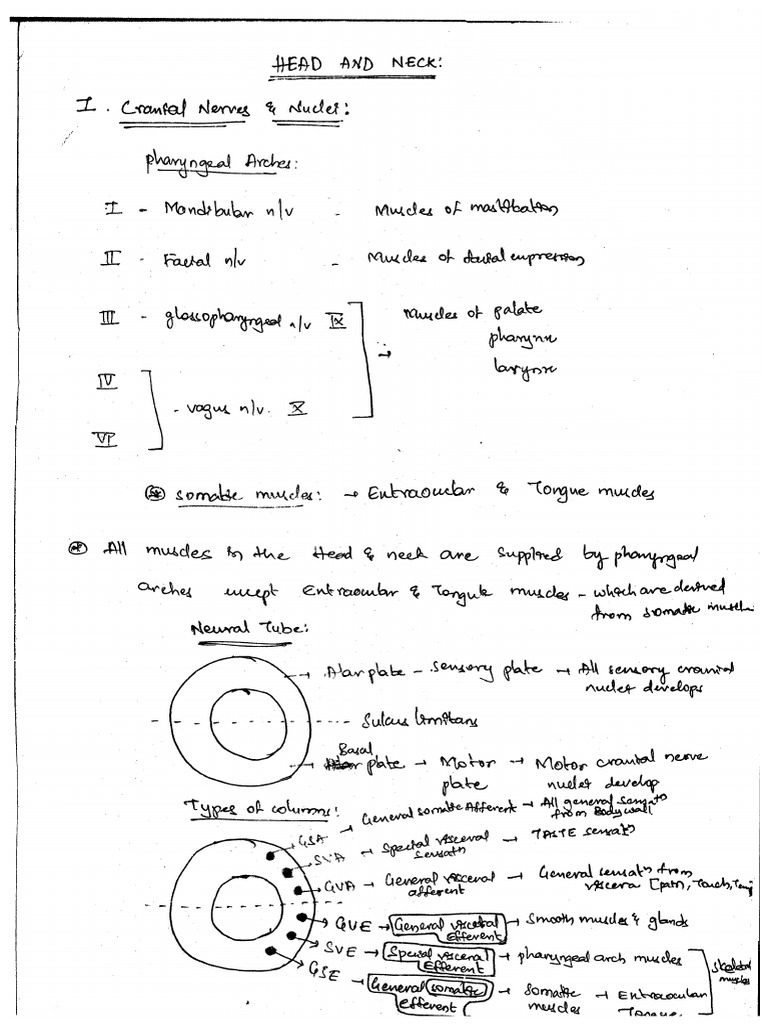 HEAD AND NECK:
I. Cranial Nerves & Nuclei:
Pharyngeal Arches:
I - Mandibular n/v - Muscles of mastication
II - Facial n/v - Muscles of facial expression
III - glossopharyngeal n/v IX → Muscles of palate
pharynx
larynx
IV
- vagus n/v. X
VI
* Somatic muscles: → Extraocular & Tongue muscles
* All muscles in the Head & neck are supplied by pharyngeal
arches except Extraocular & Tongue muscles - which are derived
from somatic muscle
Neural Tube:
Alar plate - Sensory plate → All sensory cranial
nuclei develops
Sulcus limitans
Basal
plate → Motor → Motor cranial nerve
plate nuclei develop
Types of columns:
GSA → General somatic Afferent → All general sensatn
from Body wall
SVA → Special visceral → TASTE sensatn
sensatn
GVA → General visceral → General sensatn from
afferent viscera [pain, Touch, Temp
GVE → General visceral → Smooth muscles & glands
Efferent
SVE → Special visceral → pharyngeal arch muscles
Efferent
Skeletal
muscles
GSE → General somatic → Somatic → Extraocular
efferent muscles Tongue